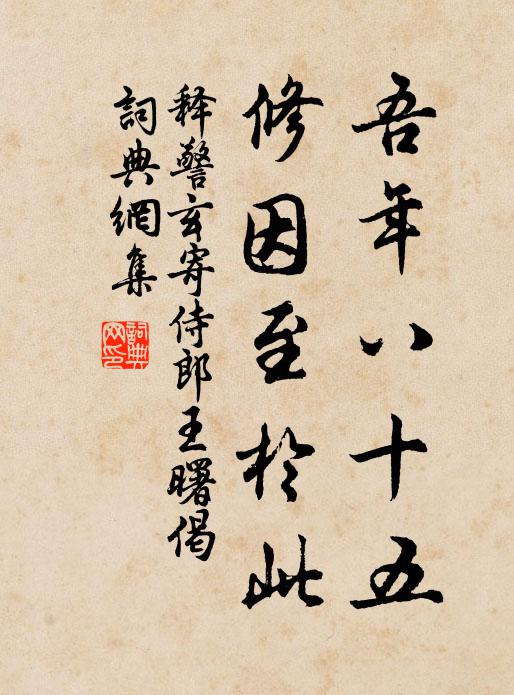 吾年八十五
修因至於此
釋警玄寄侍郎王曙偈
詞典網集
詞典網印